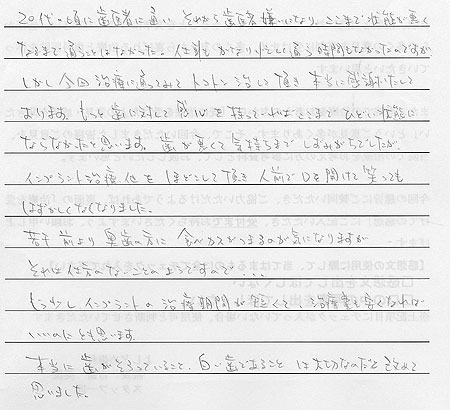 20代の頃に歯医者に通い、それから歯医者嫌いになり、ここまで状態が悪く
なるまで通うことはなかった。仕事もかなり忙しく通う時間もなかったのですが
しかし今回治療に通ってみてトコトン治して頂き本当に感謝いたして
おります。もっと歯に対して感心を持っていればここまでひどい状態に
ならなかたと思います。歯が悪くて気持ちまでしずみがちでしたが、
インプラント治療、他をほどこして頂き人前で口を開けて笑っても
はずかしくなくなりました。
若干前より奥歯の方に食べカスがつまるのが気になりますが
それは仕方のないことのようですので・・・・
もう少しインプラントの治療期間が短くて、治療費も安くなれば
いいのにとも思います。
本当に歯がそろっていること、白い歯であることは大切なんだと改めて
思いました。